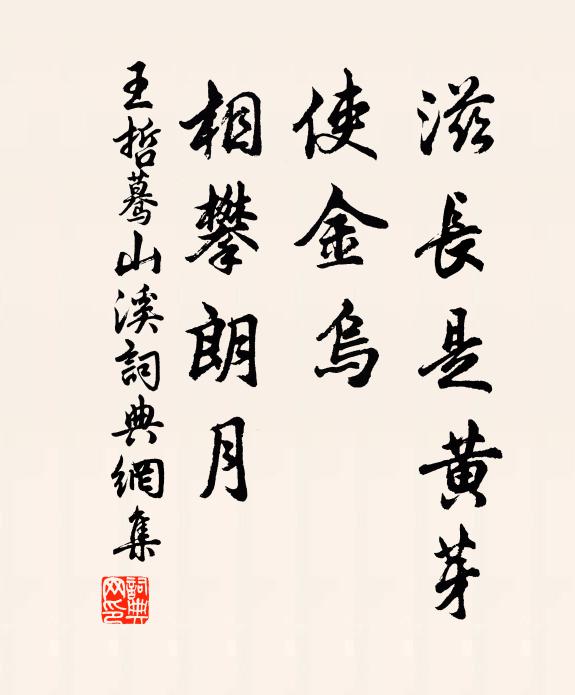 滋長是黃芽
使金烏
相攀朗月
王哲驀山溪詞典網集
詞典網印